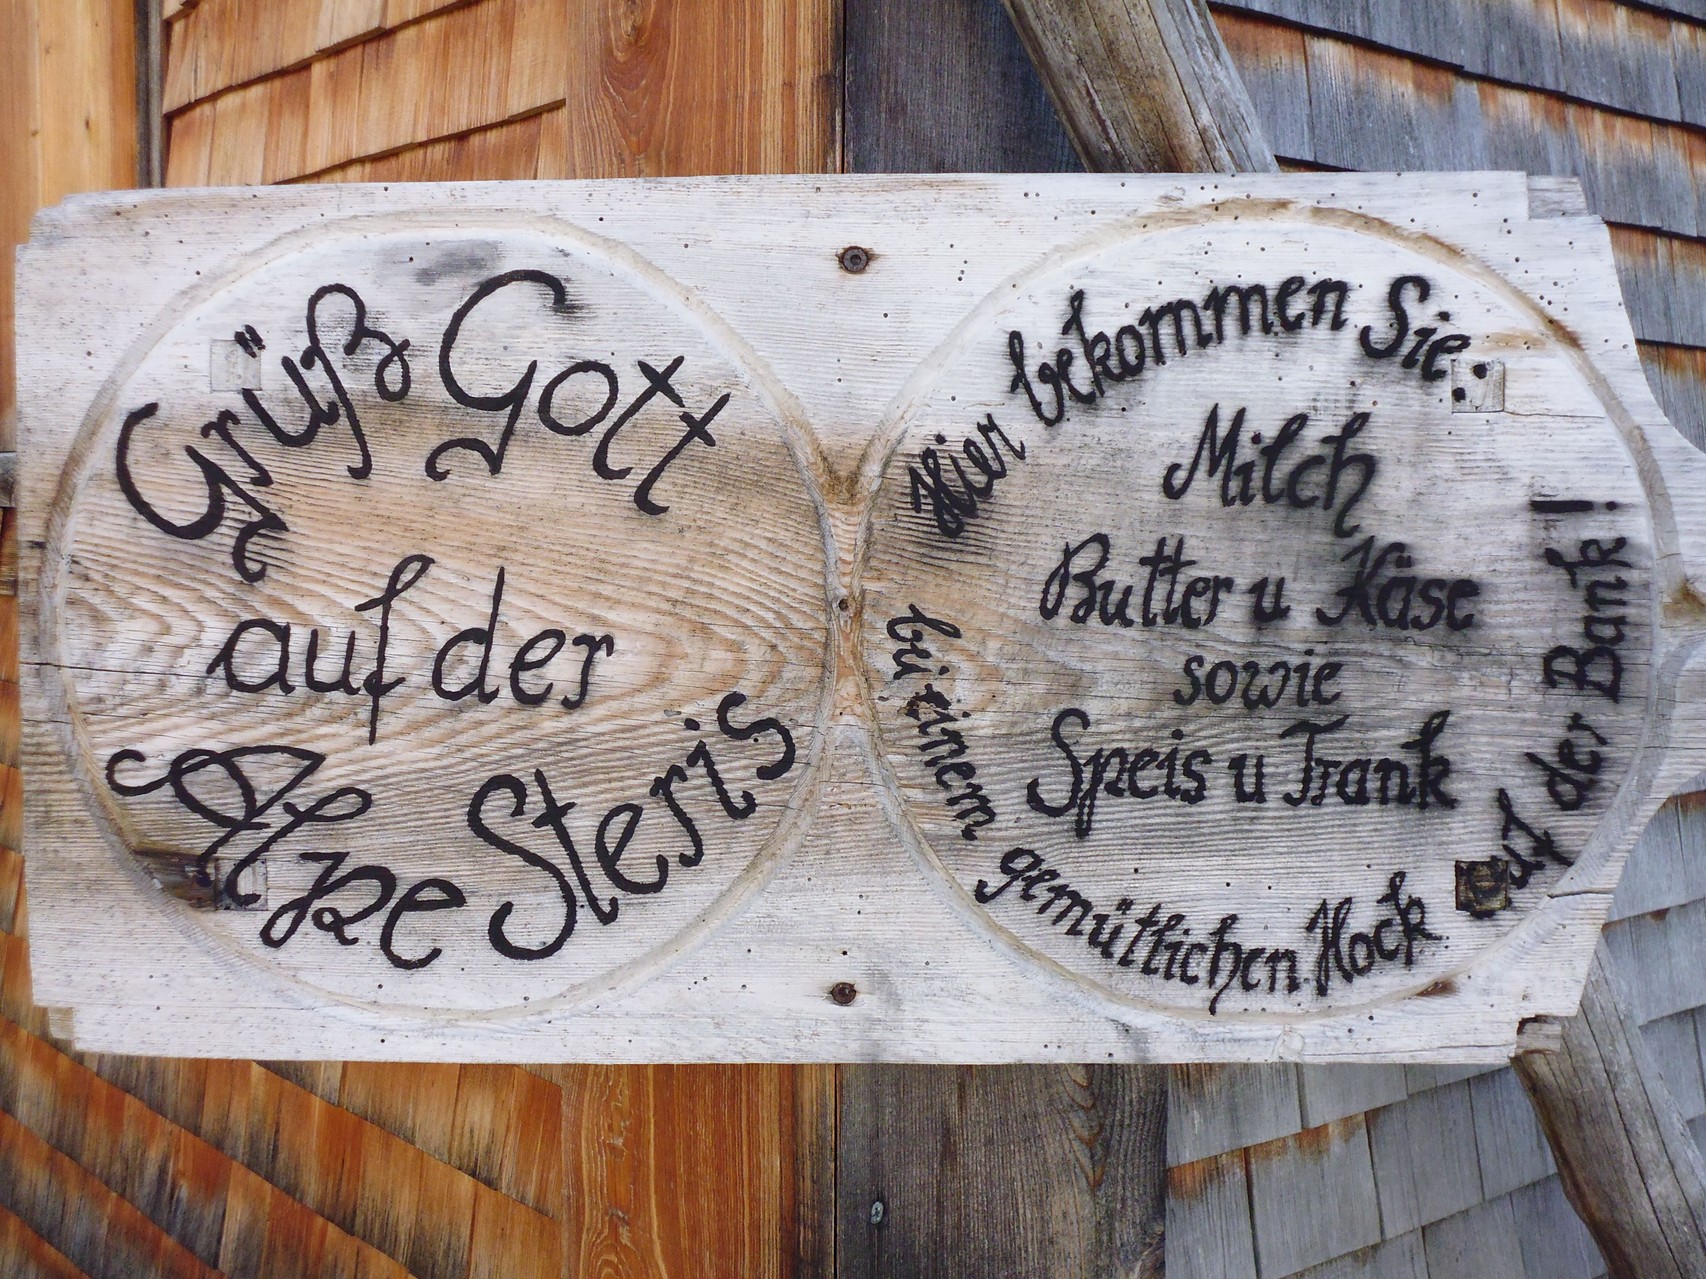 Grüß Gott
auf der
Alpe Steris
Hier bekommen Sie:
Milch
Butter u Käse
sowie
Speis u Trank
bei einem gemütlichen Hock auf der Bank!